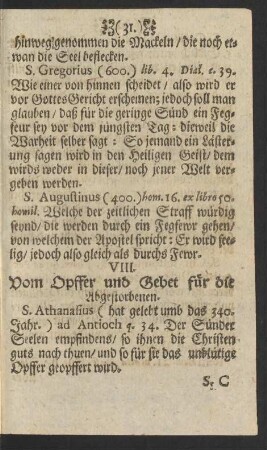 (31.)
hinweg genommen die Mackeln / die noch et-
wan die Seel beflecken.
S. Gregorius (600.) lib. 4. Dial. c. 39.
Wie einer von hinnen scheidet / also wird er
vor Gottes Gericht erscheinen; jedoch soll man
glauben / daß für die geringe Sünd ein Feg-
feur sey vor dem jüngsten Tag: dieweil die
Warheit selber sagt: So jemand ein Läster-
ung sagen wird in den Heiligen Geist / dem
wirds weder in dieser / noch jener Welt verge-
geben werden.
S. Augustinus (400.) hom. 16. ex libro 50.
homil. Welche der zeitlichen Straff würdig
seynd / die werden durch ein Fegfewr gehen /
von welchem der Apostel spricht: Er wird see-
lig / jedoch also gleich als durchs Fewr.
VIII.
Vom Opffer und Gebet für die
Abgestorbenen.
S. Athanasius (hat gelebt umb das 340.
Jahr.) ad Antioch q. 34. Der Sünder
Seelen empfindens / so ihnen die Christen
guts nach thuen / und so für sie das unblutige
Opffer geopffert wird.
S. C